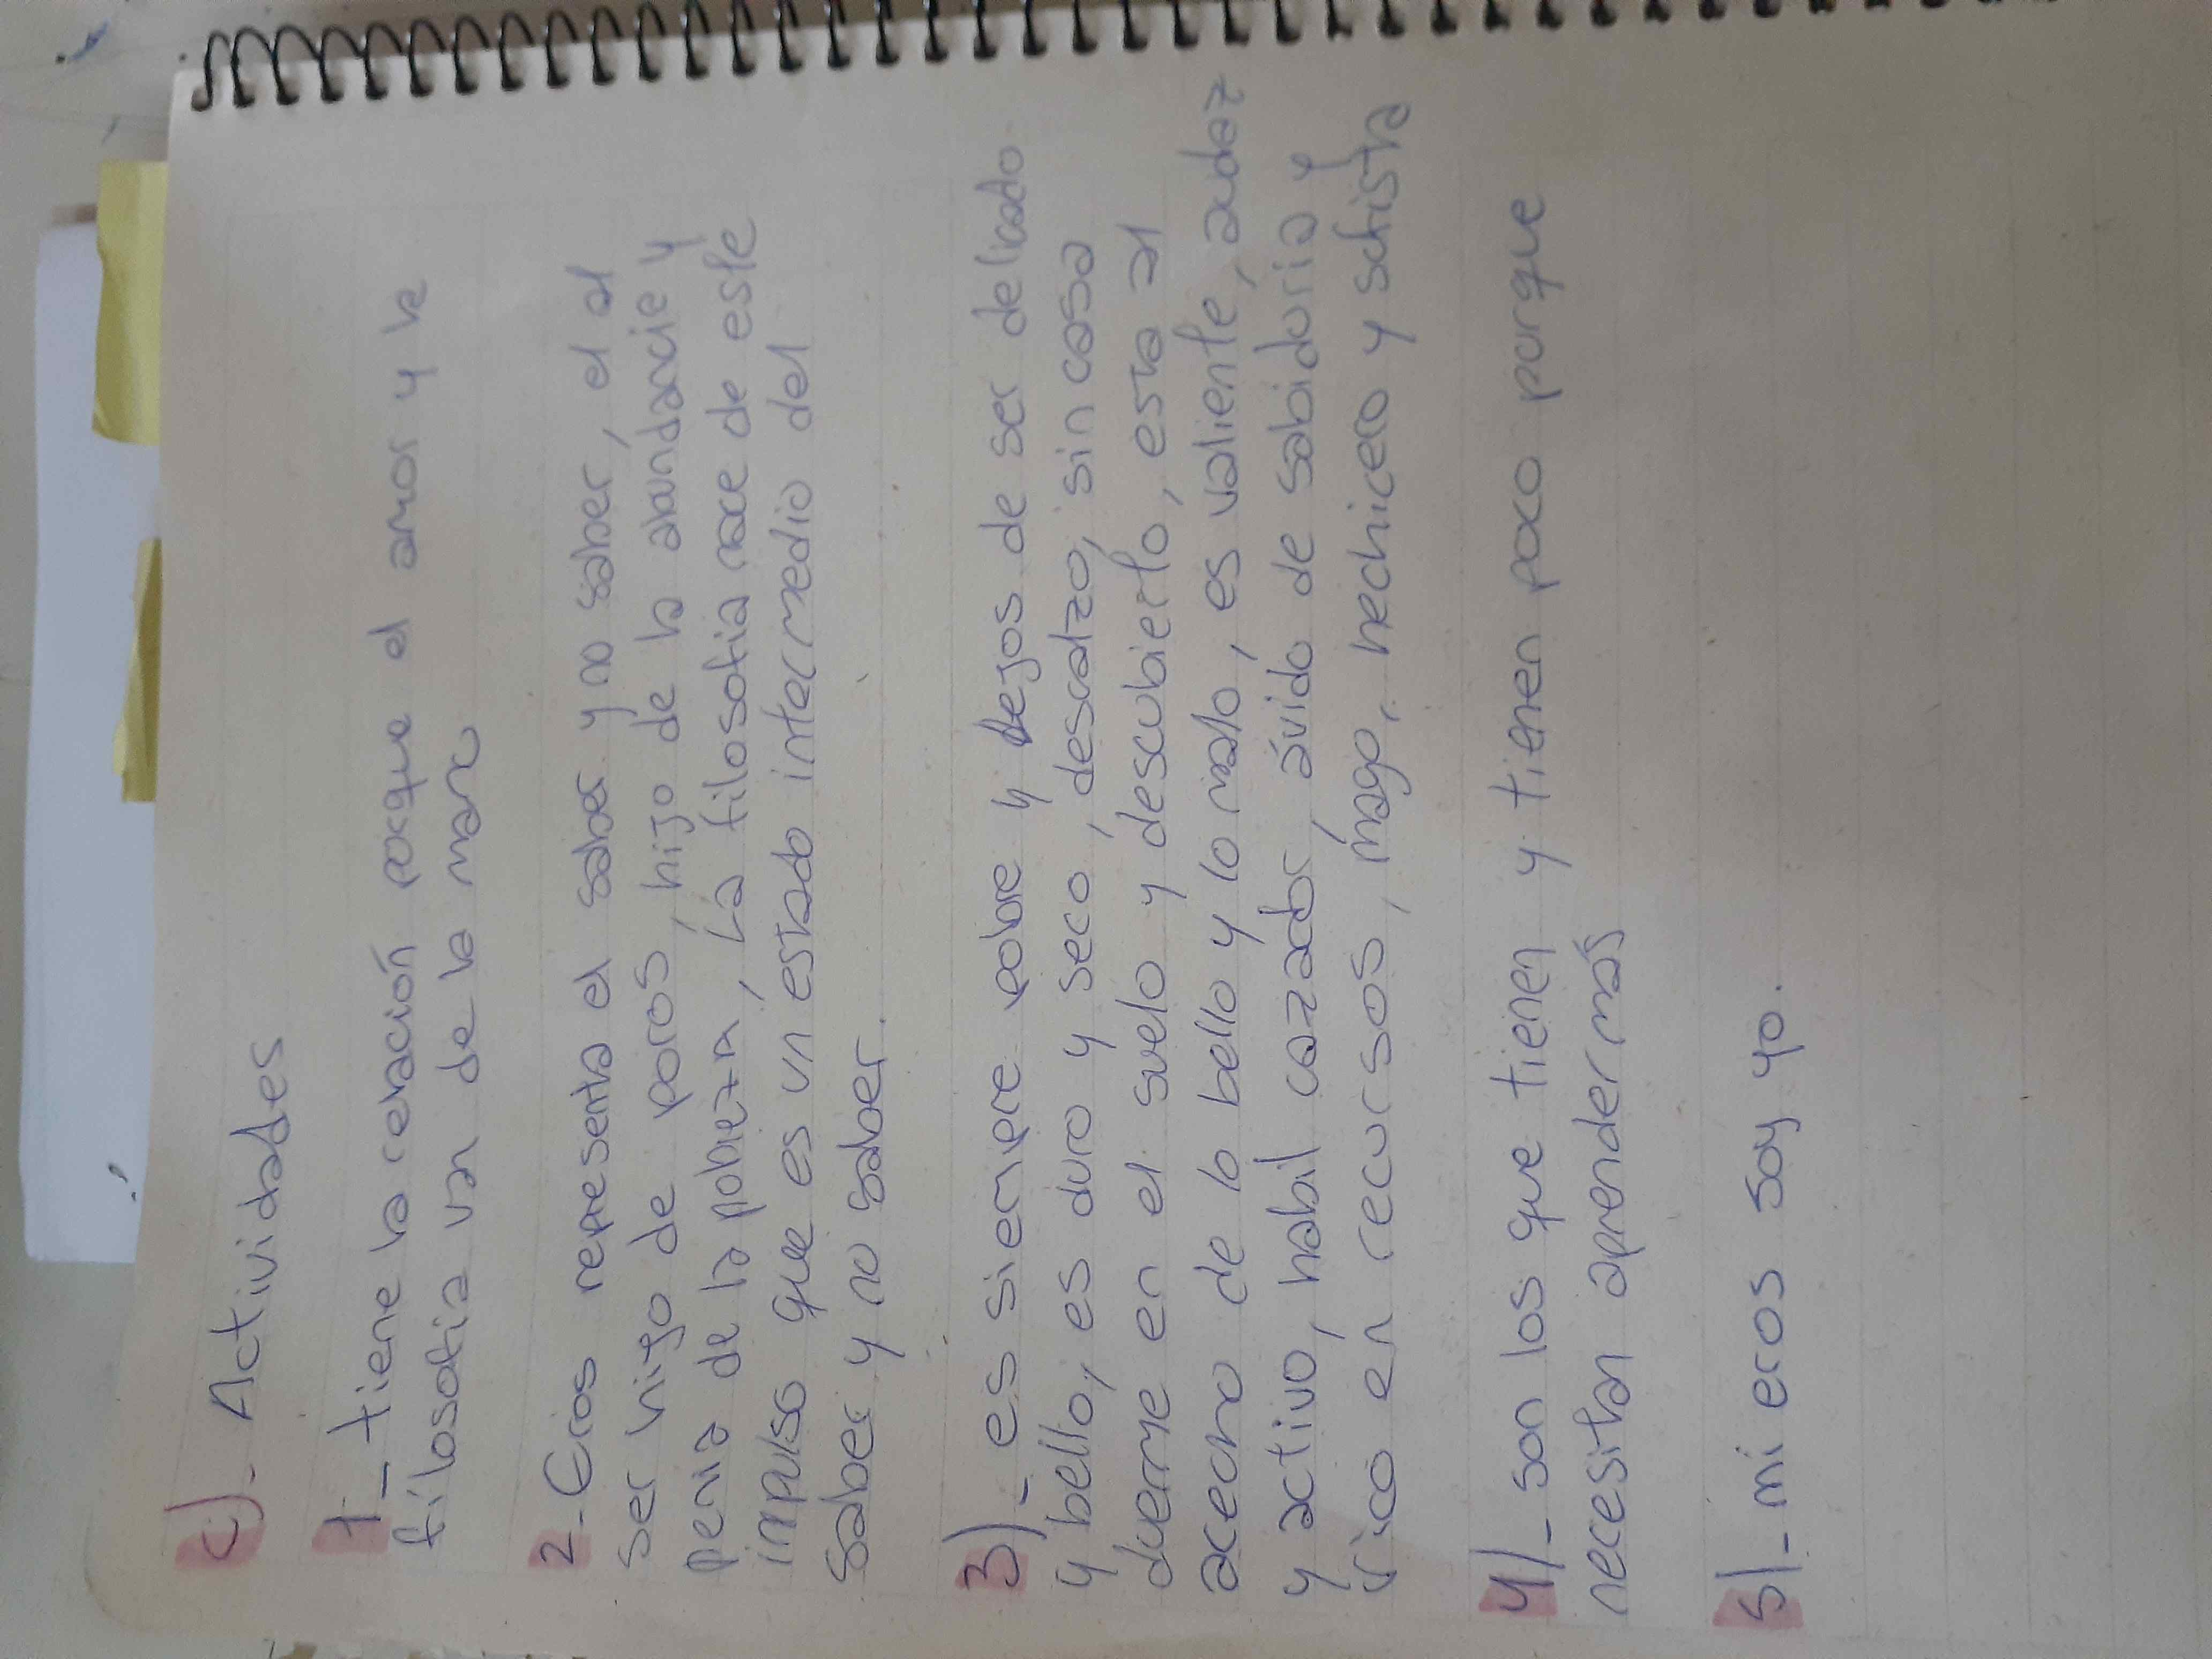 c)- Actividades
1_ tiene la relación porque el amor y la
filosofia van de la mano
2- Eros representa el saber y no saber, el al
ser hijo de poros, hijo de la abundancia y
penia de la pobreza, La filosofia nace de este
impulso que es un estado intermedio del
saber y no saber.
3)_ es siempre pobre y lejos de ser delicado
y bello, es duro y seco, descalzo, sin casa
duerme en el suelo y descubierto, esta al
acecho de lo bello y lo malo, es valiente, audaz
y activo, habil cazador, ávido de sabiduria y
rico en recursos, mago, hechicero y sofista
4)_ son los que tienen y tienen poco porque
necesitan aprender más
5)_ mi eros soy yo.